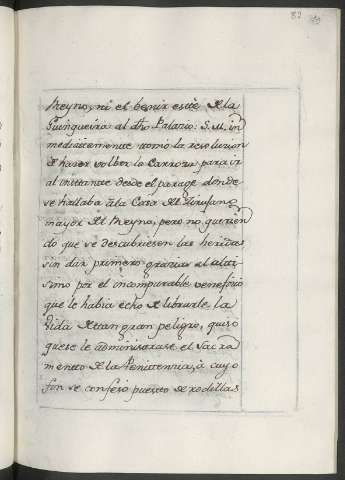 82
Reyno, ni el benir este de la
Guingueira al dho Palazio: S. M. in
mediatamente tomo la resoluzion
de haser volber la Carroza para ir
al instante desde el parage donde
se hallaba à la Casa del Zirujano
mayor del Reyno, pero no querien
do que se descubriesen las heridas
sin dar primero grazias al altis
simo por el incomparable venefizio
que le habia echo de librarle la
vida de tan gran peligro, quiso
que se le administrase el Sacra
mento de la Penitenzia, à cuyo
fin se confesò puesto de rodillas